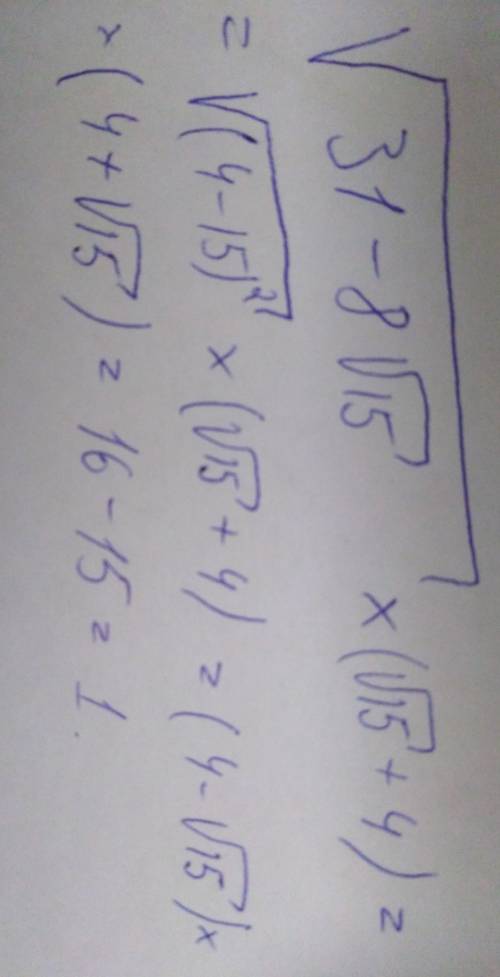 √(31 - 8√15) × (√15 + 4) =
= √(4 - 15)² × (√15 + 4) = (4 - √15) ×
× (4 + √15) = 16 - 15 = 1.